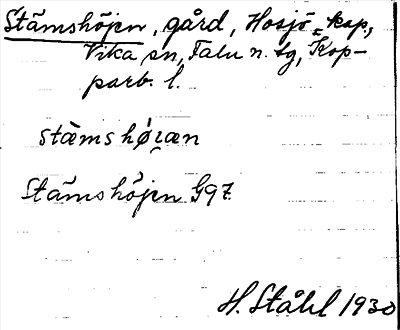 Stämshöjen, gård, Hosjö kap.,
Vika sn, Falu n. tg, Kop-
parb. l.
stæ̀mshø̀ɪ̯æn
Stämshöjen G97
H. Ståhl 1930